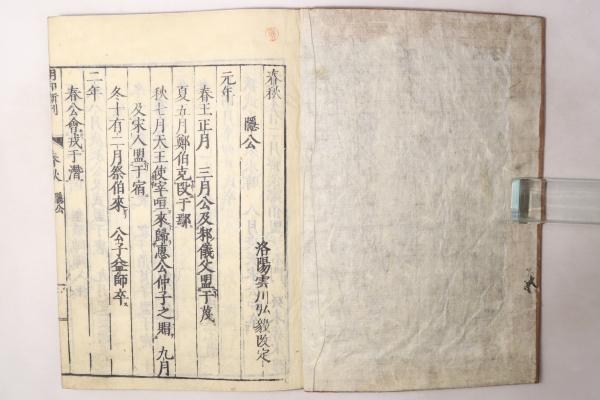 春秋
隱公
洛陽雲川弘毅改定
元年
春王正月 三月公及邾儀父盟于蔑
夏五月鄭伯克段于鄢
秋七月天王使宰咺來歸惠公仲子之賵 九月
及宋人盟于宿
冬十有二月祭伯來 公子益師卒
二年
春公會戎于潛
春秋 隱公